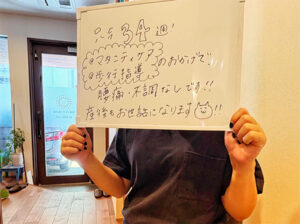 34週!
マタニティケア
歩行指導 のおかげで
腰痛・不調なしです!!
産後もお世話になります!!